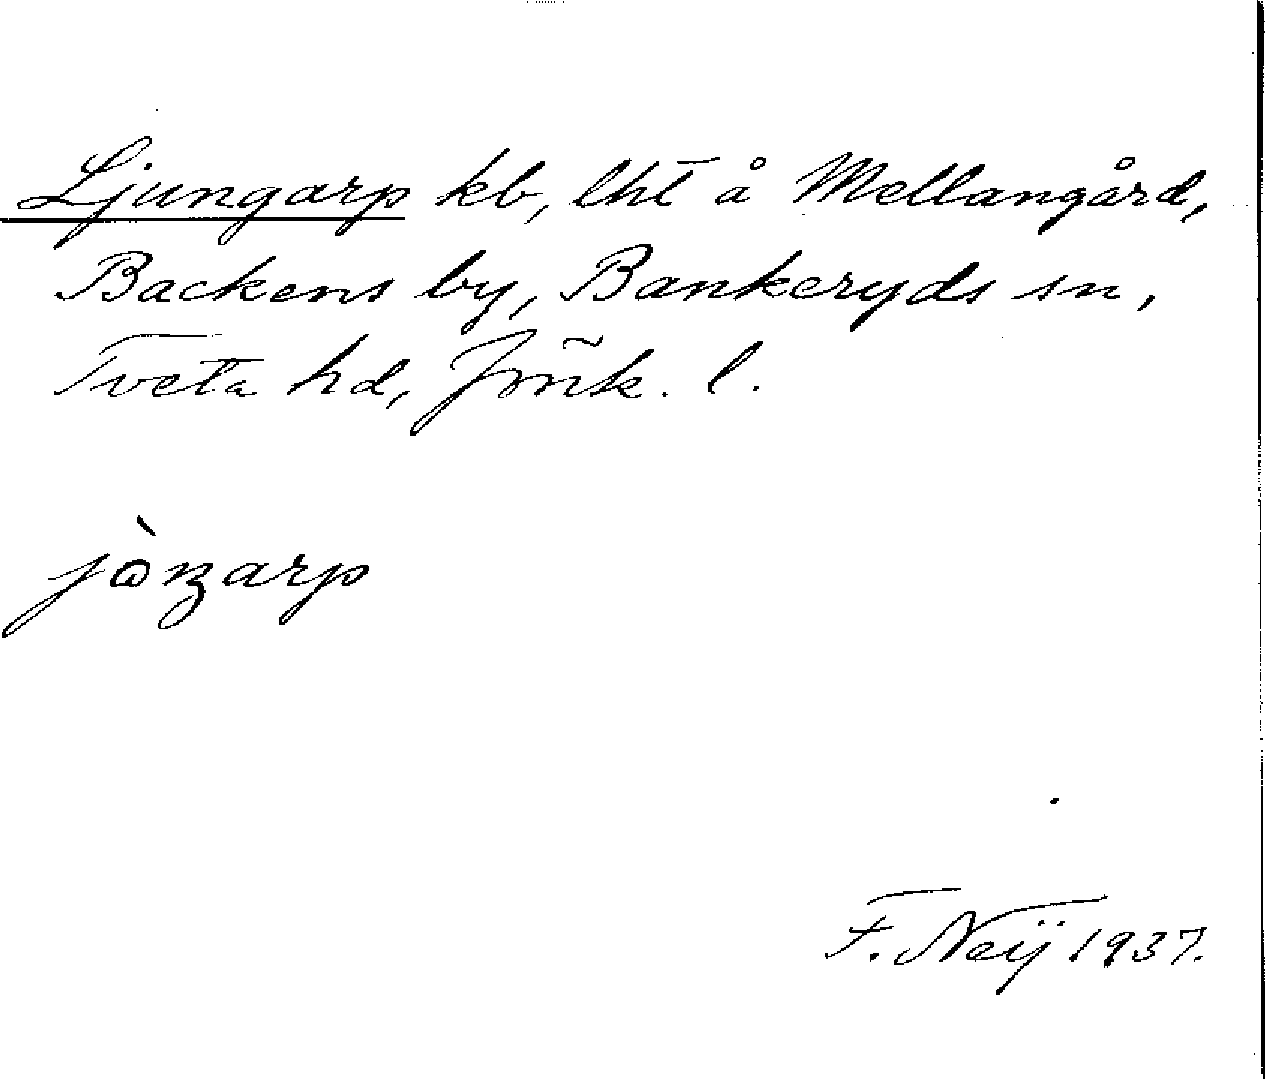 Ljungarp kb, lht å Mellangård,
Backens by, Bankeryds sn,
Tveta hd, Jönk. l.
F. Neij 1937.